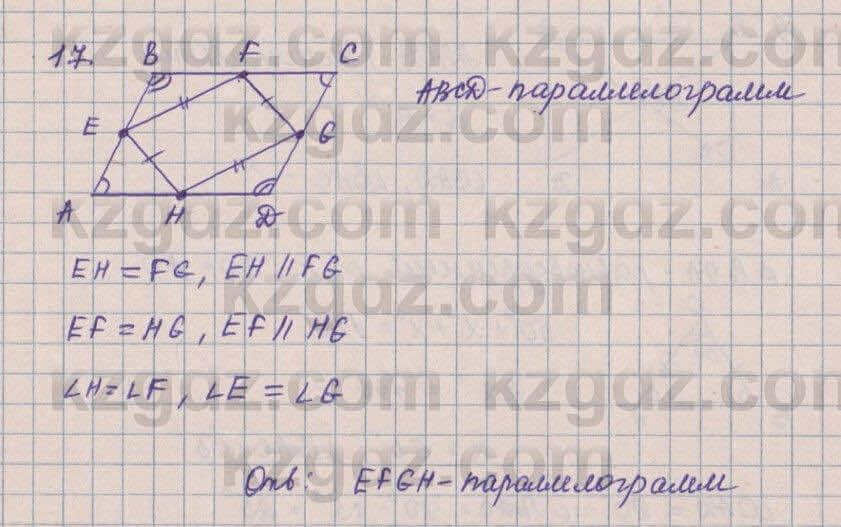 17.
B F C
ABCD - параллелограмм
E G
A H D
EH = FG, EH || FG
EF = HG, EF || HG
∠H = ∠F, ∠E = ∠G
Отв: EFGH - параллелограмм
kzgdz.com kzgdz.com
kzgdz.com
kzgdz.com kzgdz.com
kzgdz.com
kzgdz.com kzgdz.com
kzgdz.com